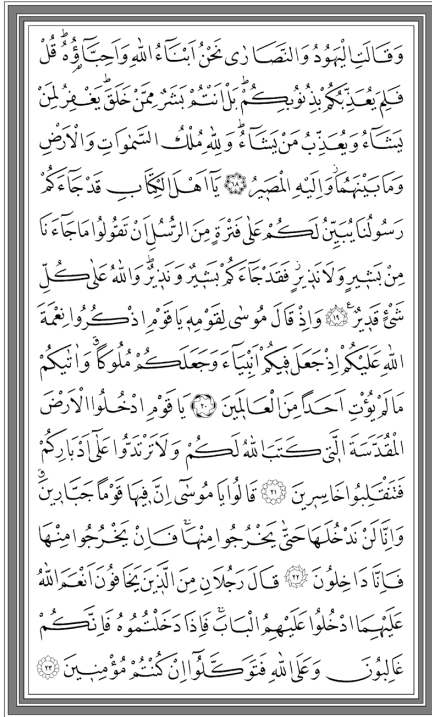 وَقَالَتِ الْيَهُودُ وَالنَّصَارٰى نَحْنُ اَبْنَاءُ اللّٰهِ وَاَحِبَّاؤُهُۜ قُلْ
فَلِمَ يُعَذِّبُكُمْ بِذُنُوبِكُمْۜ بَلْ اَنْتُمْ بَشَرٌ مِمَّنْ خَلَقَۜ يَغْفِرُ لِمَنْ
يَشَاءُ وَيُعَذِّبُ مَنْ يَشَاءُۜ وَلِلّٰهِ مُلْكُ السَّمٰوَاتِ وَالْاَرْضِ
وَمَا بَيْنَهُمَاۘ وَاِلَيْهِ الْمَصٖيرُ ﴿١٨﴾ يَا اَهْلَ الْكِتَابِ قَدْ جَاءَكُمْ
رَسُولُنَا يُبَيِّنُ لَكُمْ عَلٰى فَتْرَةٍ مِنَ الرُّسُلِ اَنْ تَقُولُوا مَا جَاءَنَا
مِنْ بَشٖيرٍ وَلَا نَذٖيرٍۘ فَقَدْ جَاءَكُمْ بَشٖيرٌ وَنَذٖيرٌۜ وَاللّٰهُ عَلٰى كُلِّ
شَيْءٍ قَدٖيرٌ ﴿١٩﴾ وَاِذْ قَالَ مُوسٰى لِقَوْمِهٖ يَا قَوْمِ اذْكُرُوا نِعْمَةَ
اللّٰهِ عَلَيْكُمْ اِذْ جَعَلَ فٖيكُمْ اَنْبِيَاءَ وَجَعَلَكُمْ مُلُوكاًۗ وَاٰتٰيكُمْ
مَا لَمْ يُؤْتِ اَحَداً مِنَ الْعَالَمٖينَ ﴿٢٠﴾ يَا قَوْمِ ادْخُلُوا الْاَرْضَ
الْمُقَدَّسَةَ الَّتٖي كَتَبَ اللّٰهُ لَكُمْ وَلَا تَرْتَدُّوا عَلٰى اَدْبَارِكُمْ
فَتَنْقَلِبُوا خَاسِرٖينَ ﴿٢١﴾ قَالُوا يَا مُوسٰى اِنَّ فٖيهَا قَوْماً جَبَّارٖينَۗ
وَاِنَّا لَنْ نَدْخُلَهَا حَتّٰى يَخْرُجُوا مِنْهَاۚ فَاِنْ يَخْرُجُوا مِنْهَا
فَاِنَّا دَاخِلُونَ ﴿٢٢﴾ قَالَ رَجُلَانِ مِنَ الَّذٖينَ يَخَافُونَ اَنْعَمَ اللّٰهُ
عَلَيْهِمَا ادْخُلُوا عَلَيْهِمُ الْبَابَۚ فَاِذَا دَخَلْتُمُوهُ فَاِنَّكُمْ
غَالِبُونَ وَعَلَى اللّٰهِ فَتَوَكَّلُوا اِنْ كُنْتُمْ مُؤْمِنٖينَ ﴿٢٣﴾